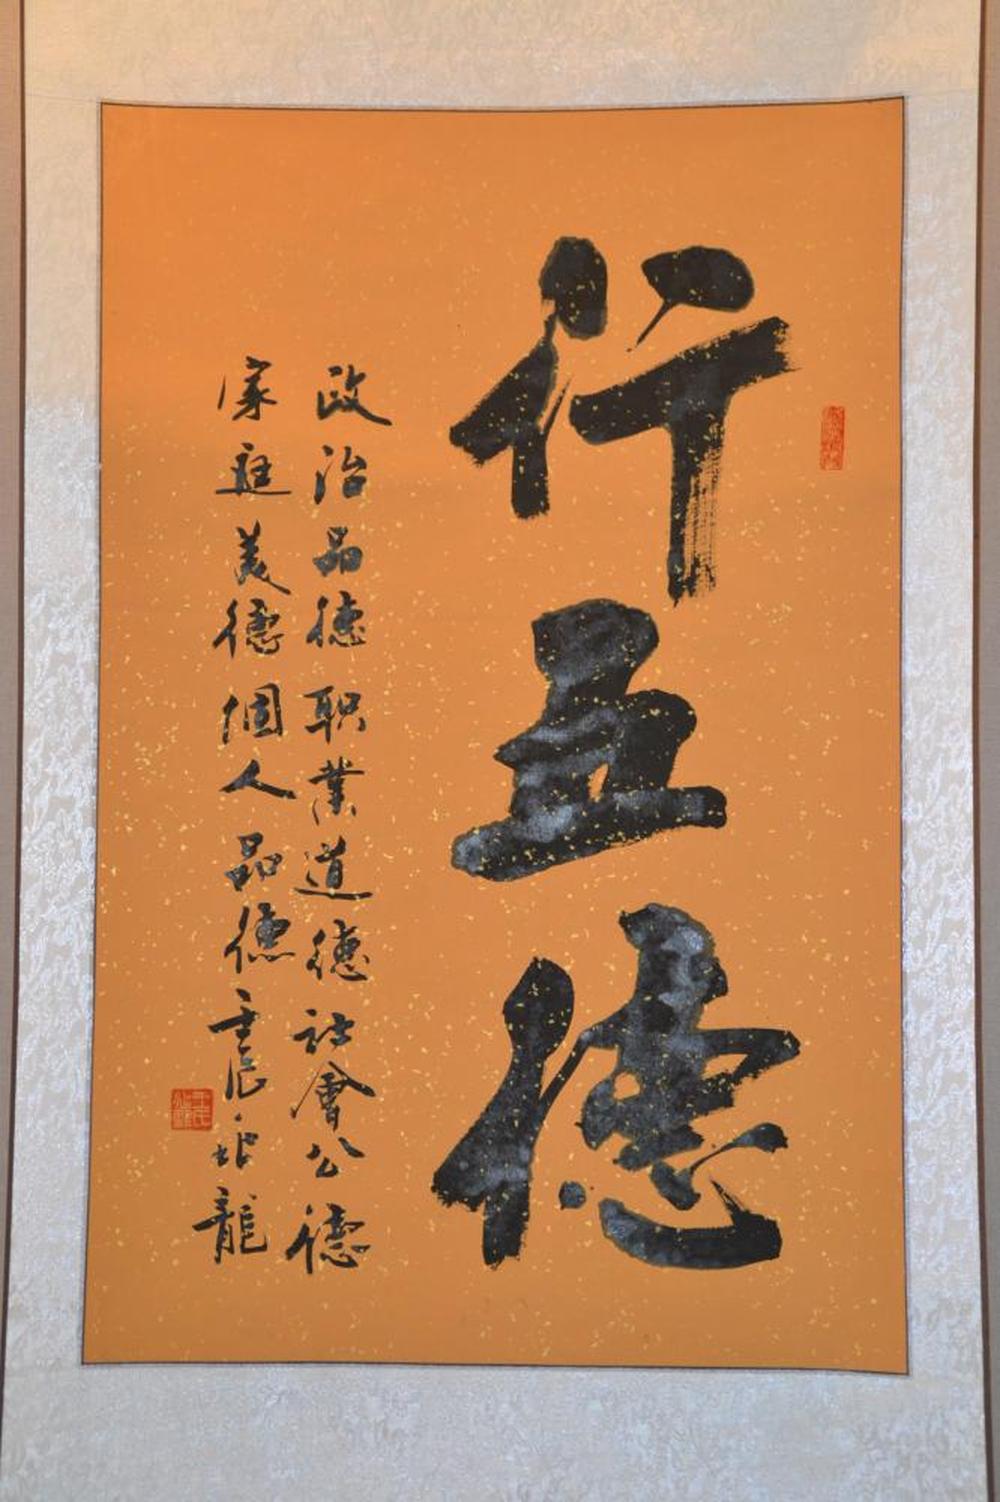 行五德
政治品德职業道德社會公德
家庭美德個人品德
龍